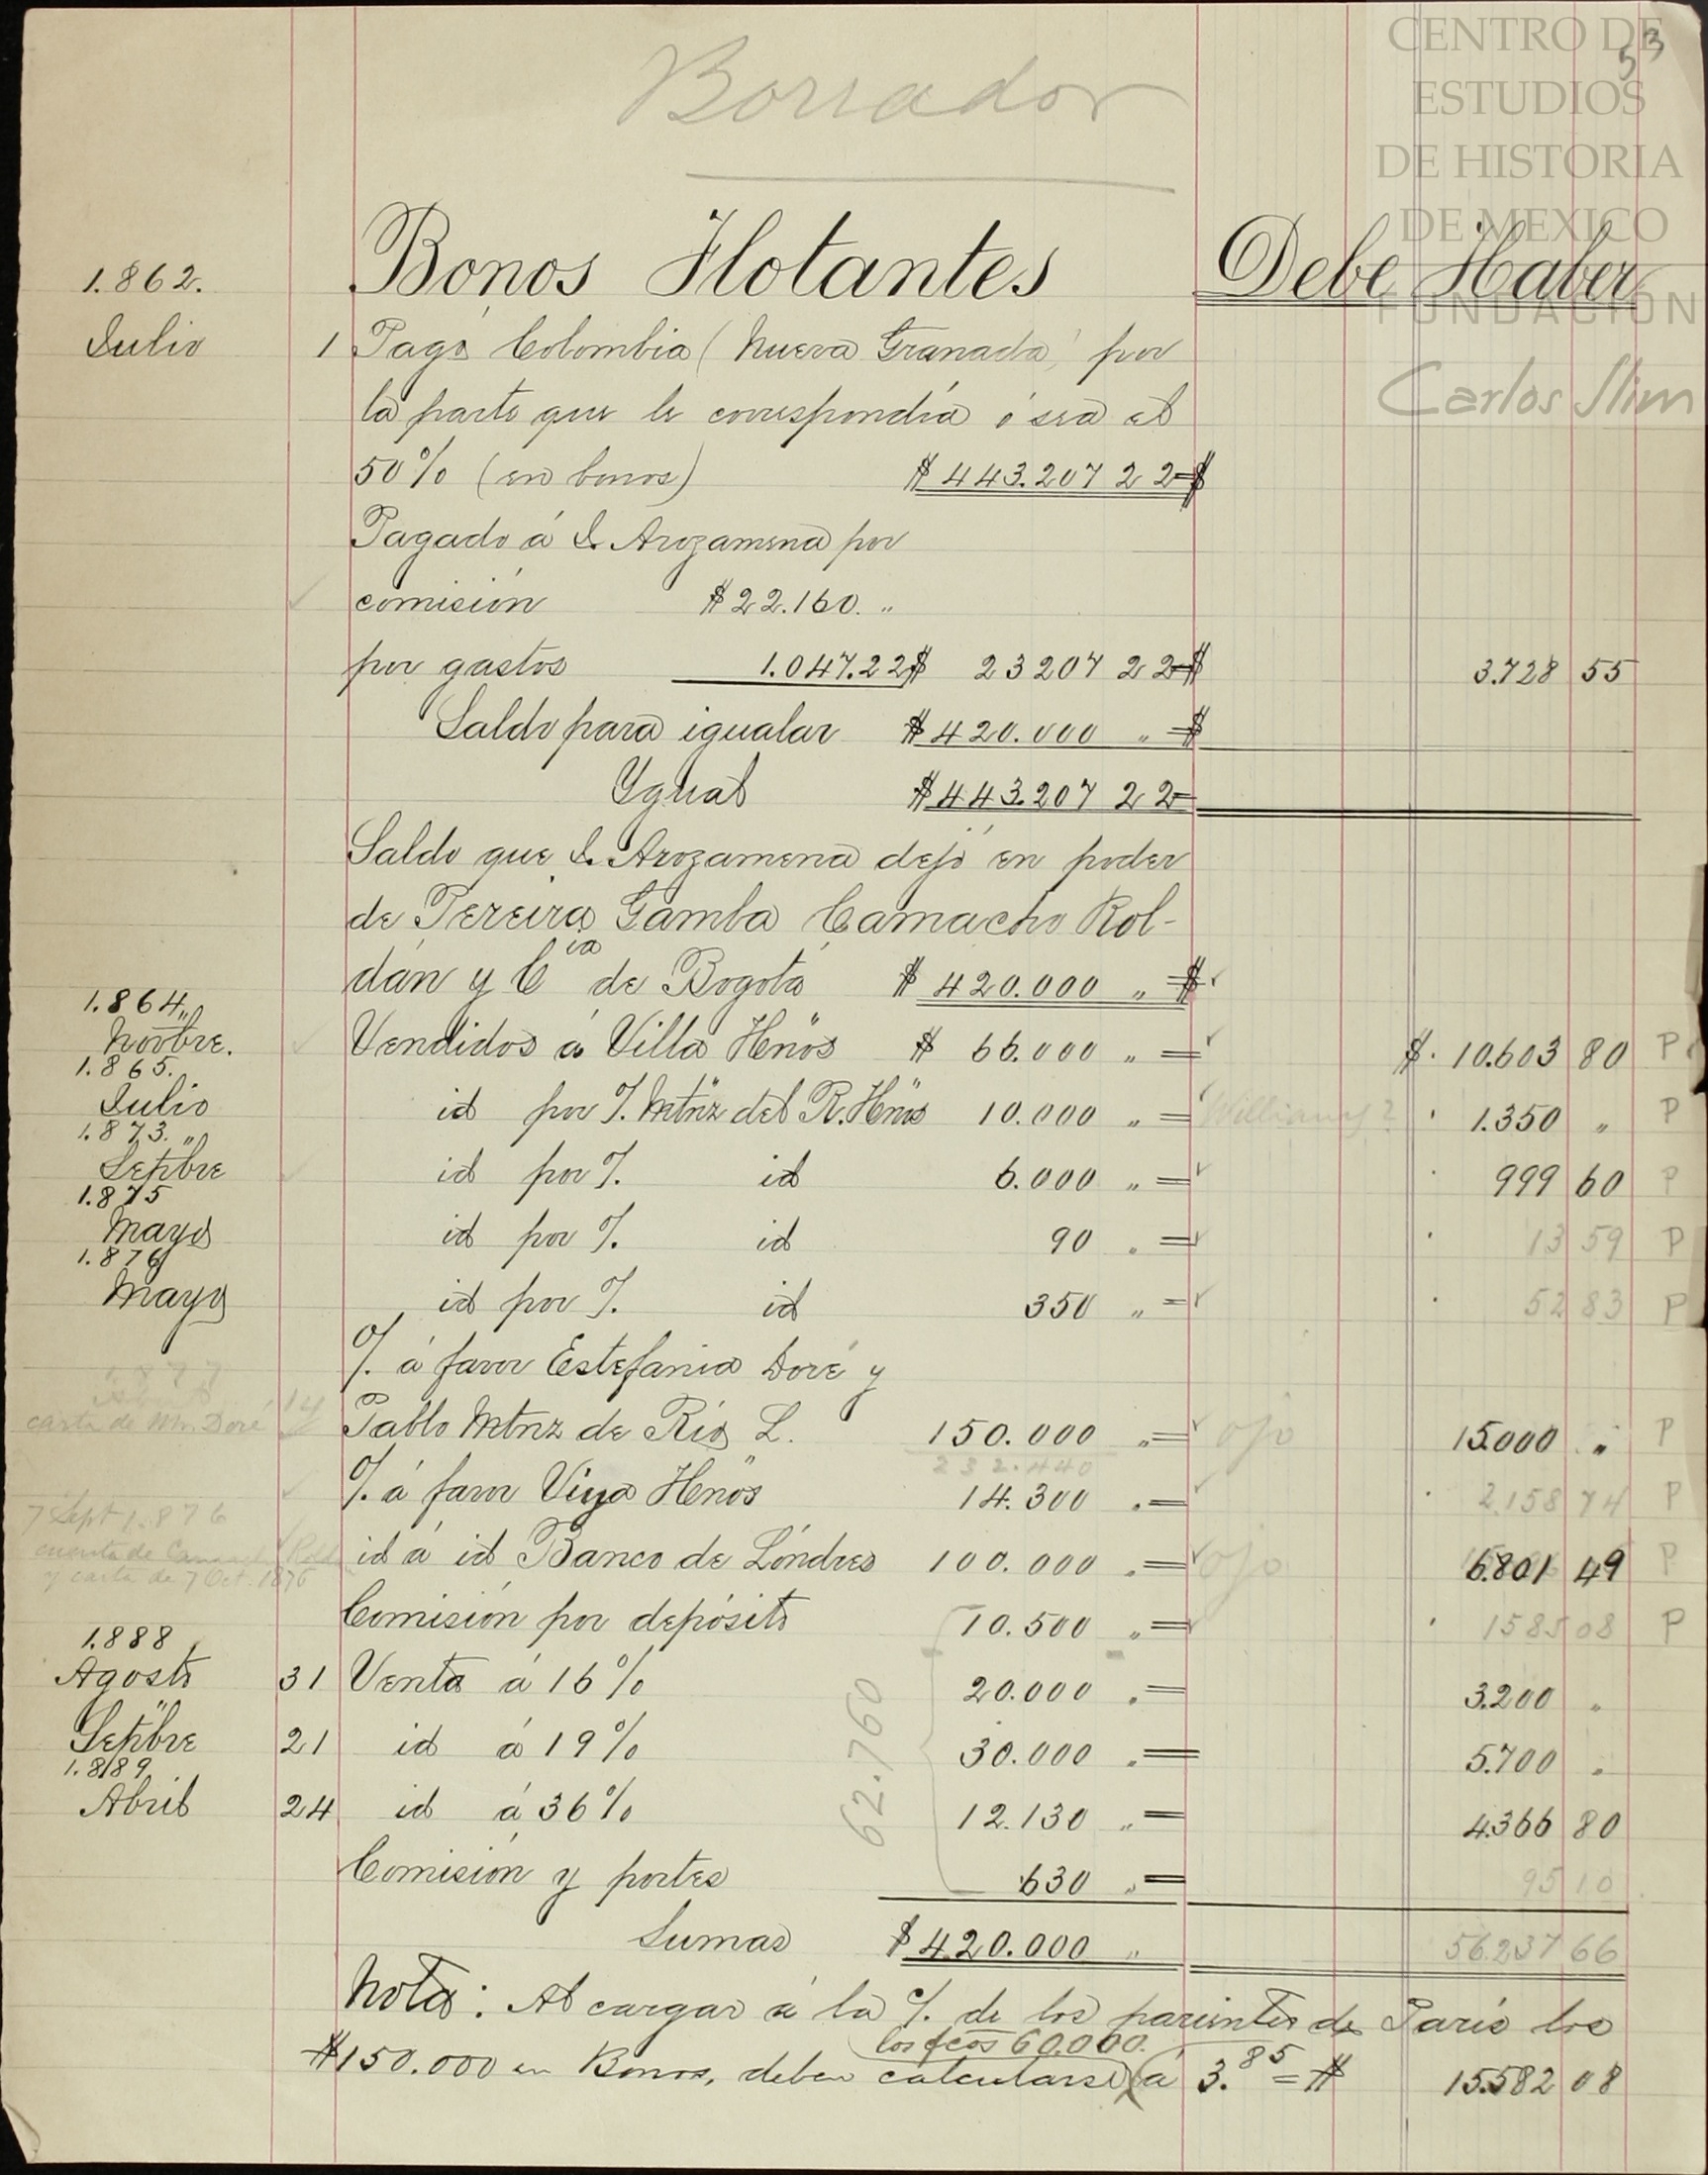 53
CENTRO DE
ESTUDIOS
DE HISTORIA
DE MEXICO
FUNDACIÓN
Carlos Slim
Borrador
1.862. Bonos Flotantes Debe Haber
Julio 1 Pagó Colombia (Nueva Granada) por
la parte que le correspondía ó sea el
50% (en bonos) $ 443.207 22 = $
Pagado á J. Arozamena por
comisión $ 22.160. „
por gastos 1.047.22 $ 23207 22 = $ 3.728 55
Saldo para igualar $ 420.000 „ = $
Ygual $ 443.207 22
Saldo que J. Arozamena dejó en poder
de Pereira Gamba Camacho Rol-
dán y Cia de Bogotá $ 420.000 „ = $
1.864 „
Novbre. Vendidos á Villa Henos $ 66.000 „ = $. 10.603 80 P
1.865.
Julio id por %. Mtnz del R. Hnos 10.000 „ = Williams? 1.350 „ P
1.873. „
Sepbre id por %. id 6.000 „ = 999 60 P
1.875
Mayo id por %. id 90 . = 13 59 P
1.876
Mayo id por %. id 350 „ = 52 83 P
%. á favor Estefania Doré y
1877
Abril
carta de Mr. Doré 14 Pablo Mtnz de Rio L. 150.000 „ = ojo 15.000 „ P
232.440
%. á favor Viya Henos 14.300 . = 2.158 74 P
7 Sept 1.876
cuenta de Camacho Rold
y carta de 7 Oct. 1876
id á id Banco de Lóndres 100.000 . = ojo 6.801 49 P
Comisión por depósito 10.500 „ = 1585 08 P
1.888
Agosto 31 Venta á 16% 20.000 . = 3.200 „
Sepbre 21 id á 19% 30.000 . = 5.700 „
1.889
Abril 24 id á 36% 12.130 „ = 4.366 80
62.760
Comisión y portes 630 „ = 95 10
Sumas $ 420.000 „ 56.237 66
Nota: Al cargar á la %. de los parientes de Paris los
los fcos 60.000.
$150.000 en Bonos, deben calcularse á 3.85 = $ 15.582 08